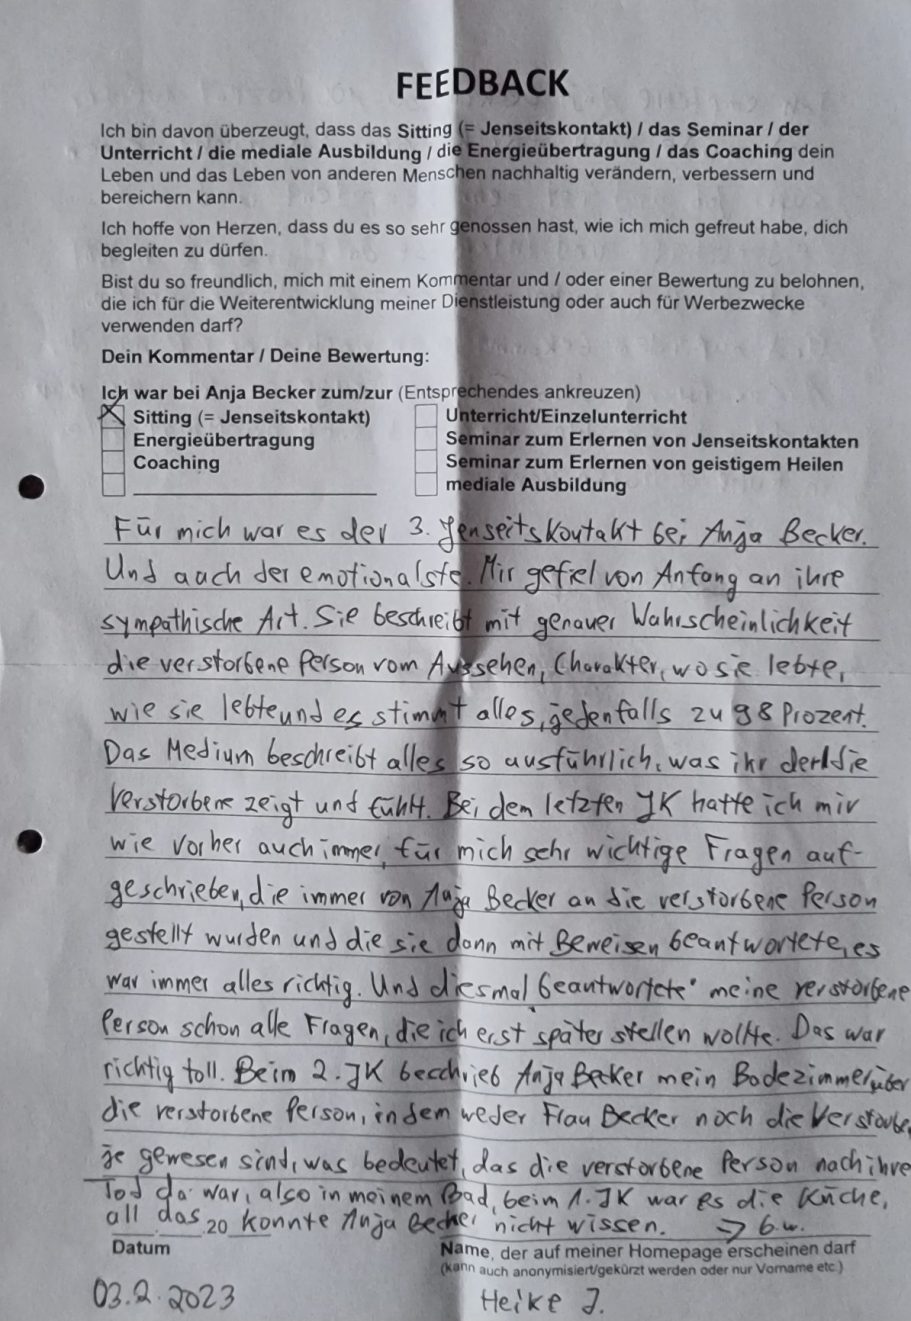 FEEDBACK
Ich bin davon überzeugt, dass das Sitting (= Jenseitskontakt) / das Seminar / der
Unterricht / die mediale Ausbildung / die Energieübertragung / das Coaching dein
Leben und das Leben von anderen Menschen nachhaltig verändern, verbessern und
bereichern kann.
Ich hoffe von Herzen, dass du es so sehr genossen hast, wie ich mich gefreut habe, dich
begleiten zu dürfen.
Bist du so freundlich, mich mit einem Kommentar und / oder einer Bewertung zu belohnen,
die ich für die Weiterentwicklung meiner Dienstleistung oder auch für Werbezwecke
verwenden darf?
Dein Kommentar / Deine Bewertung:
Ich war bei Anja Becker zum/zur (Entsprechendes ankreuzen)
Sitting (= Jenseitskontakt) Unterricht/Einzelunterricht
Energieübertragung Seminar zum Erlernen von Jenseitskontakten
Coaching Seminar zum Erlernen von geistigem Heilen
mediale Ausbildung
Für mich war es der 3. Jenseitskontakt bei Anja Becker.
Und auch der emotionalste. Mir gefiel von Anfang an ihre
sympathische Art. Sie beschreibt mit genauer Wahrscheinlichkeit
die verstorbene Person vom Aussehen, Charakter, wo sie lebte,
wie sie lebte und es stimmt alles, jedenfalls zu 98 Prozent.
Das Medium beschreibt alles so ausführlich, was ihr der/die
Verstorbene zeigt und fühlt. Bei dem letzten JK hatte ich mir
wie vorher auch immer, für mich sehr wichtige Fragen auf-
geschrieben, die immer von Anja Becker an die verstorbene Person
gestellt wurden und die sie dann mit Beweisen beantwortete, es
war immer alles richtig. Und diesmal beantwortete meine verstorbene
Person schon alle Fragen, die ich erst später stellen wollte. Das war
richtig toll. Beim 2. JK beschrieb Anja Becker mein Badezimmer über
die verstorbene Person, in dem weder Frau Becker noch die Verstorbe
je gewesen sind, was bedeutet, das die verstorbene Person nach ihre
Tod da war, also in meinem Bad, beim 1. JK war es die Küche,
all das 20 konnte Anja Becker nicht wissen. => b.w.
Datum Name, der auf meiner Homepage erscheinen darf
(kann auch anonymisiert/gekürzt werden oder nur Vorname etc.)
03.2.2023 Heike J.